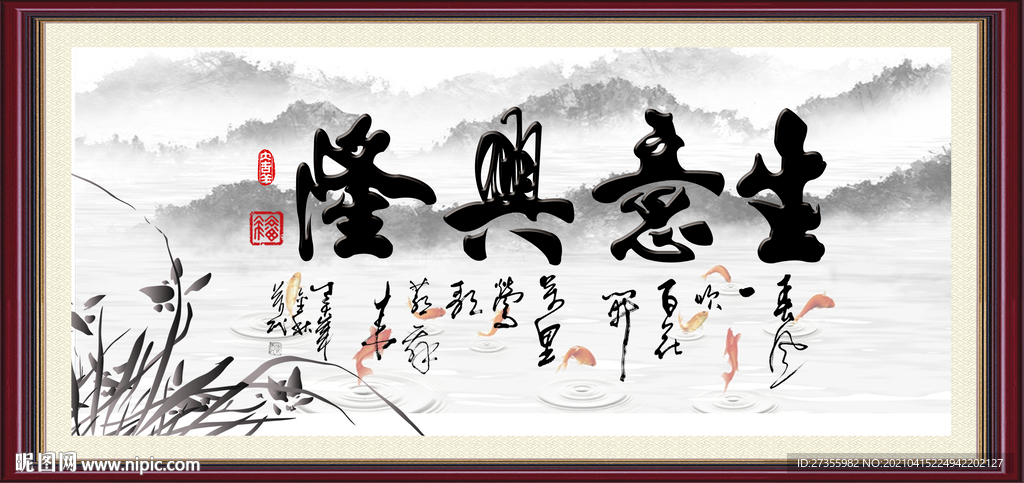 生意興隆
春风
一
吹
百花
開
万里
鶯
歌
燕舞
来
金秋
福
昵图网 www.nipic.com
ID:27355982 NO:20210415224942202127